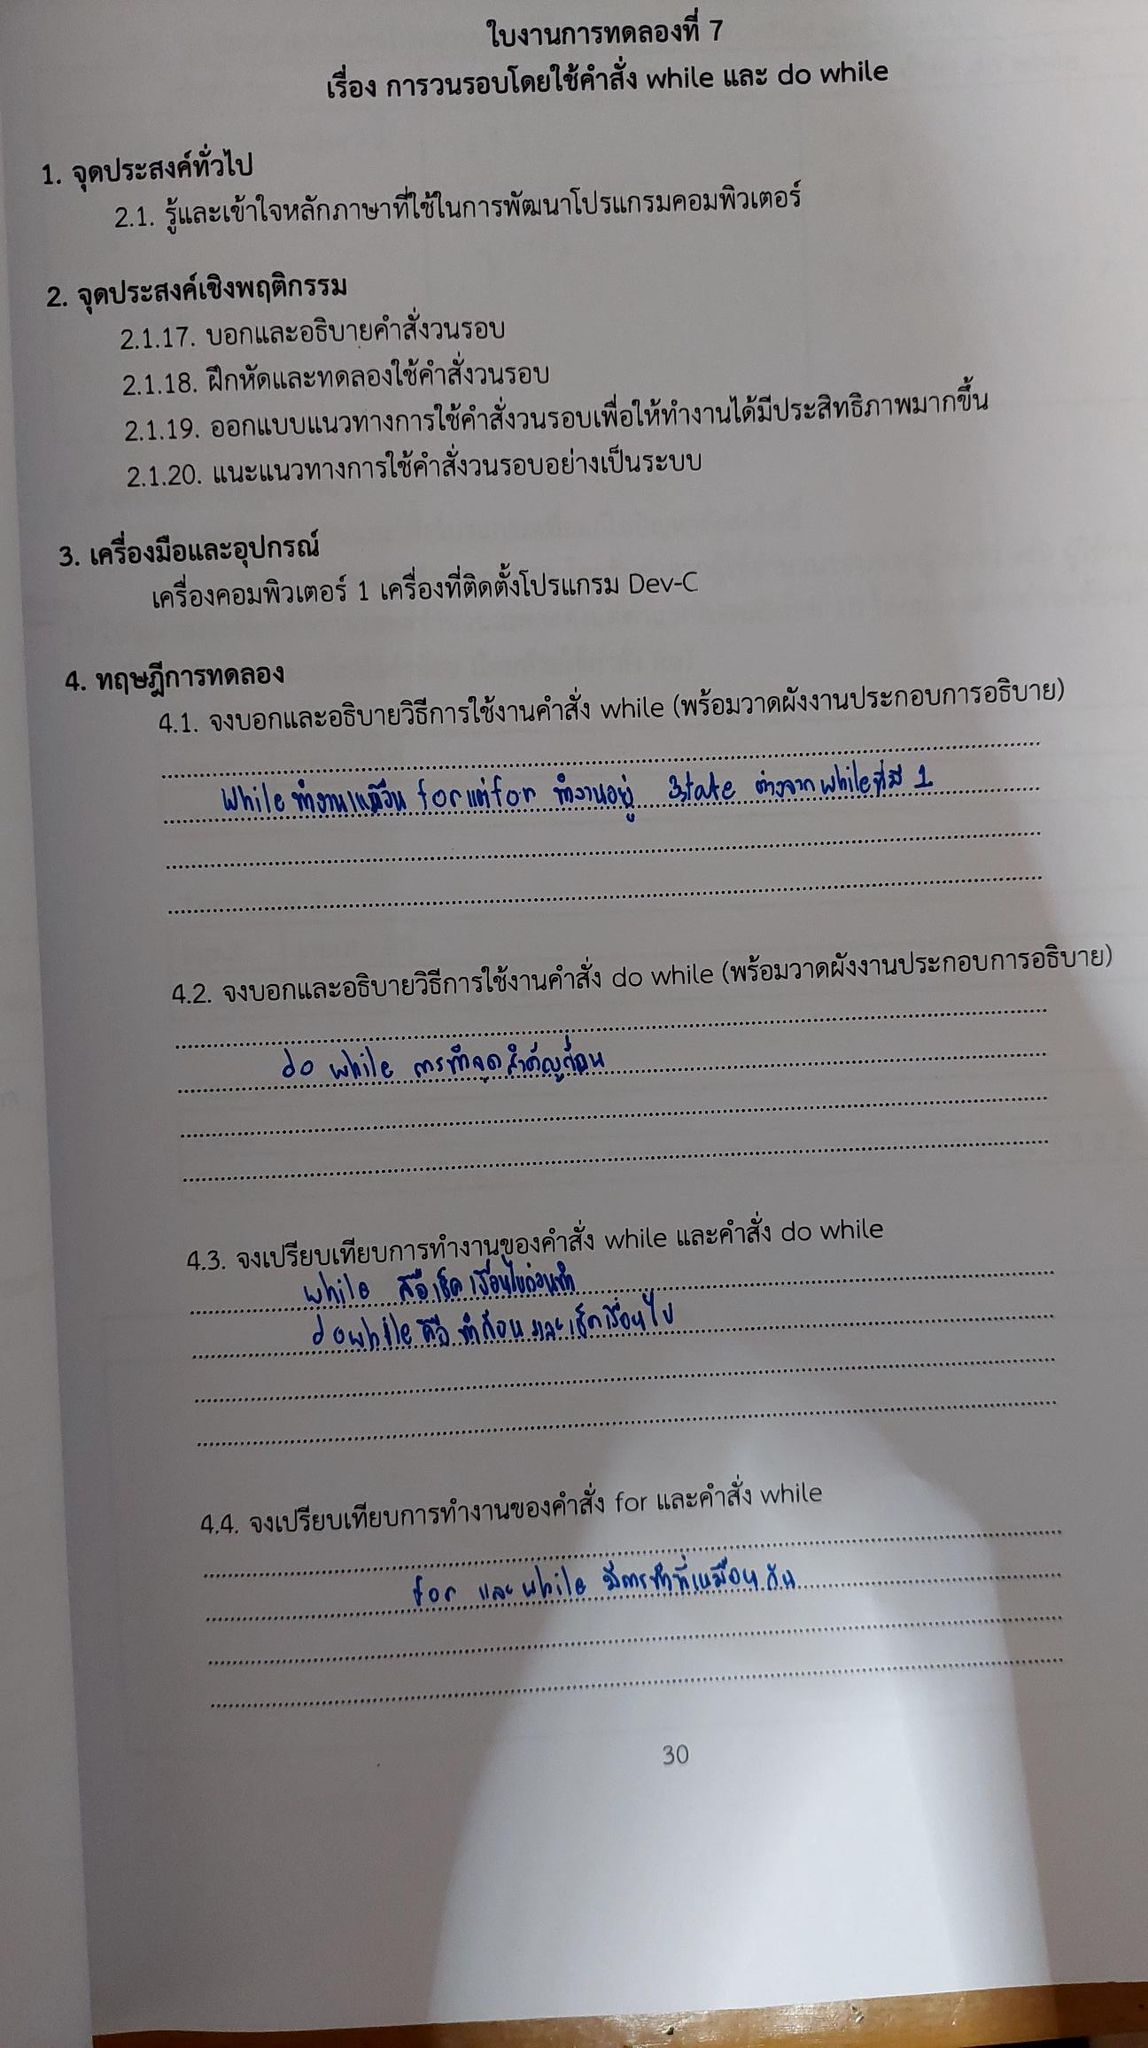 ใบงานการทดลองที่ 7
เรื่อง การวนรอบโดยใช้คำสั่ง while และ do while
1. จุดประสงค์ทั่วไป
2.1. รู้และเข้าใจหลักภาษาที่ใช้ในการพัฒนาโปรแกรมคอมพิวเตอร์
2. จุดประสงค์เชิงพฤติกรรม
2.1.17. บอกและอธิบายคำสั่งวนรอบ
2.1.18. ฝึกหัดและทดลองใช้คำสั่งวนรอบ
2.1.19. ออกแบบแนวทางการใช้คำสั่งวนรอบเพื่อให้ทำงานได้มีประสิทธิภาพมากขึ้น
2.1.20. แนะแนวทางการใช้คำสั่งวนรอบอย่างเป็นระบบ
3. เครื่องมือและอุปกรณ์
เครื่องคอมพิวเตอร์ 1 เครื่องที่ติดตั้งโปรแกรม Dev-C
4. ทฤษฎีการทดลอง
4.1. จงบอกและอธิบายวิธีการใช้งานคำสั่ง while (พร้อมวาดผังงานประกอบการอธิบาย)
while ทำงานเหมือน for แต่ for ทำงานอยู่ 3state ต่างจาก while ที่มี 1
4.2. จงบอกและอธิบายวิธีการใช้งานคำสั่ง do while (พร้อมวาดผังงานประกอบการอธิบาย)
do while การทำจุดสำคัญก่อน
4.3. จงเปรียบเทียบการทำงานของคำสั่ง while และคำสั่ง do while
while คือเช็คเงื่อนไขก่อนทำ
do while คือ ทำก่อนและเช็คเงื่อนไข
4.4. จงเปรียบเทียบการทำงานของคำสั่ง for และคำสั่ง while
for และ while มีการทำที่เหมือนกัน
30